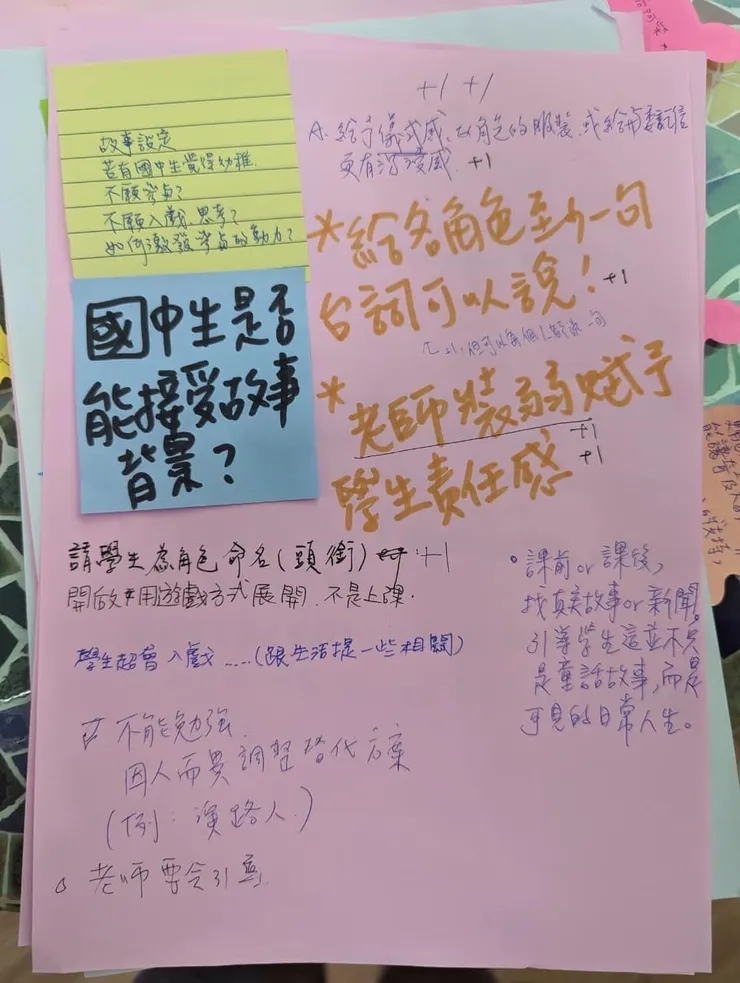 故事設定
若有國中生覺得幼稚.
不願參与?
不願入戲思考?
如何激發參与的動力?
國中生是否
能接受故事
背景?
+1 +1
A. 給予儀式感、如角色的服裝、或給予委託信
更有沉浸感. +1
*給各角色至少一句
台詞可以說! +1
但可以每個人都說一句
*老師裝弱賦予 +1
學生責任感 +1
請學生為角色命名(頭銜) +1
開放用遊戲方式展開、不是上課.
學生超會入戲.....(跟生活提一些相關)
不能勉強
因人而異調整替代方案
(例:演路人.)
老師要會引導.
• 課前or課後,
找真實故事or新聞,
引導學生這並不只
是童話故事,而是
可見的日常人生。